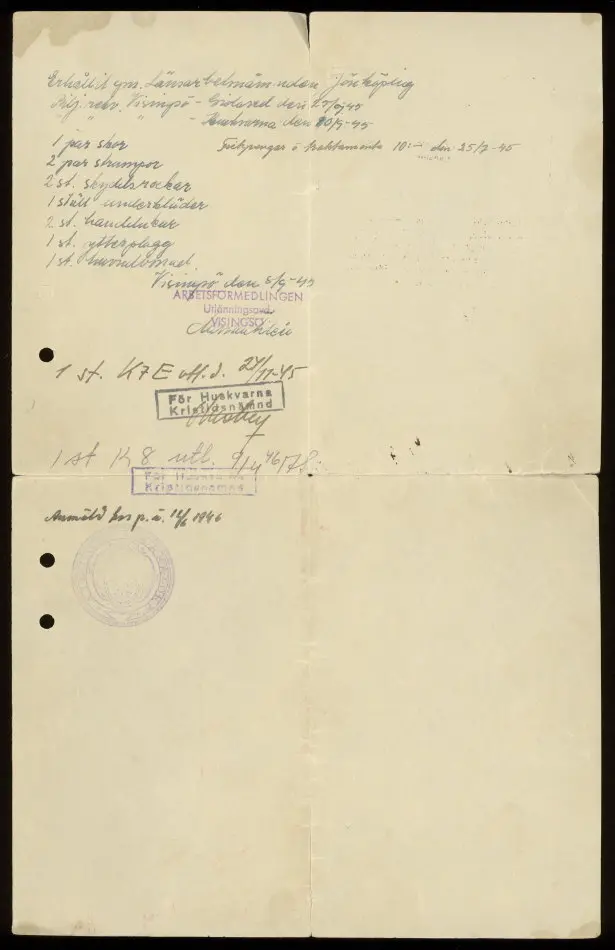 Erhållit gm. Länsarbetsnämnden Jönköping
Bilj. resv. Visingsö - Gislaved den 25/9-45
" " - Huskvarna den 20/9-45
1 par skor
Fickpengar o traktamente 10:- den 25/7-45
2 par strumpor
2 st. skyddsrockar
1 ställ underkläder
2 st. handdukar
1 st. ytterplagg
1 st. huvudbonad
Visingsö den 5/9-45
ARBETSFÖRMEDLINGEN
Utlänningsavd.
VISINGSÖ
1 st. K7E utl. d. 27/11-45
För Huskvarna
Kristidsnämnd
1 st K 8 utl. 9/4 46
För Huskvarna
Kristidsnämnd
Anmäld hos p.ä. 12/6 1946